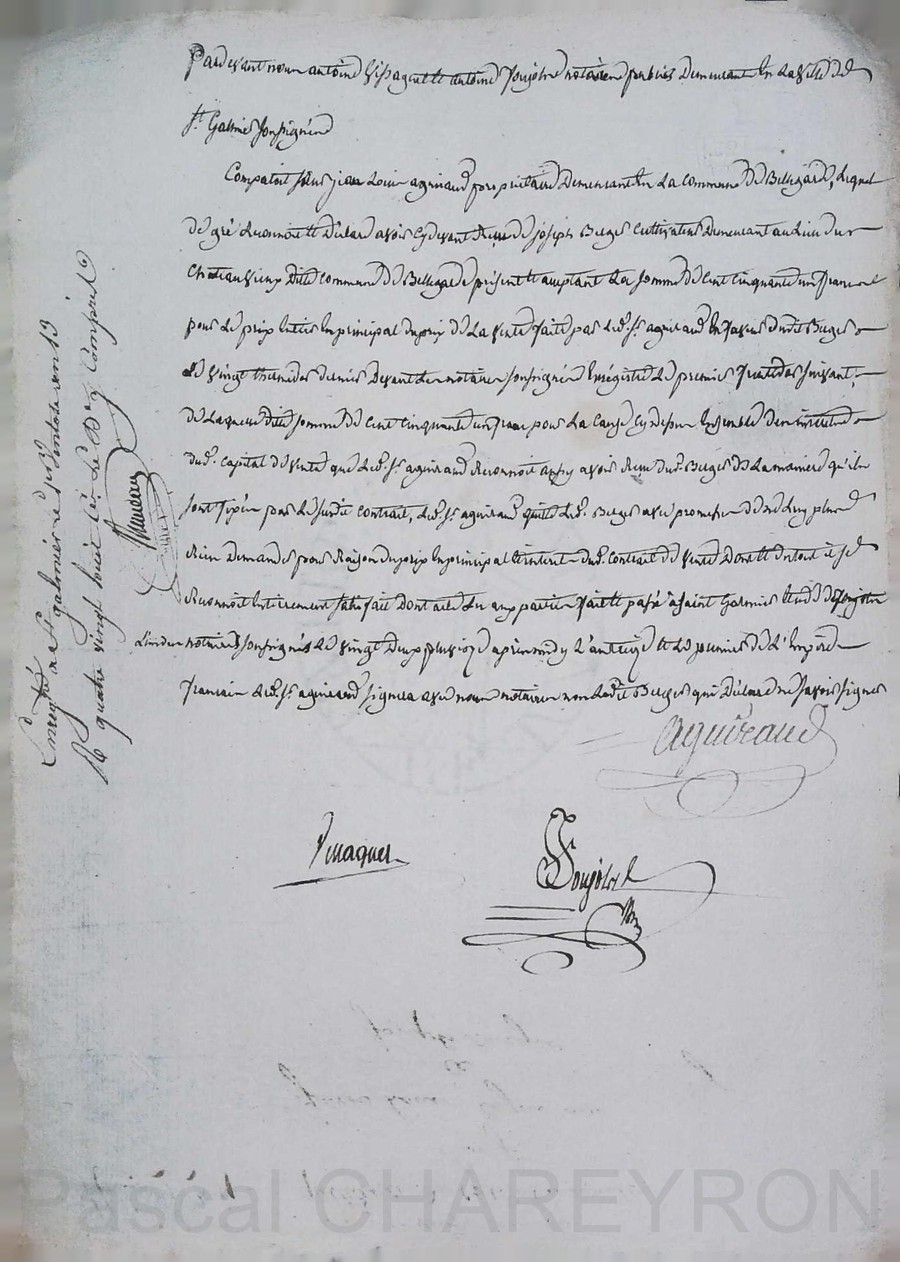 Pardevant nous antoine et antoine Poujolat notaires publics Demeurants En la ville de
St Galmier soussignés
Comparoit sieur jean Louis aguiraud propriétaire Demeurant En La Commune de Bellegarde, Lequel
de gré Reconnoit et Déclare avoir cy devant Reçu de joseph Berger Cultivateur Demeurant au Lieu du
Chateau vieux Ditte Commune de Bellegarde présent et acceptant La somme de Cent Cinquante un francs
pour Le prix En principal du prix de La vente faitte par Led. Sr aguiraud En faveur dudit Berger
Le vingt thermidor dernier Devant Les notaires soussignés Enregistré Le premier fructidor suivant,
de Laquelle ditte somme de Cent Cinquante un francs pour La Cause Cy dessus Ensemble des intérêts
dud. Capital de vente que Led. Sr aguiraud Reconnoit aussy avoir Reçu dud. Berger de La maniere qu'ils
sont fixés par Le susdit Contrait, Led. Sr aguiraud quitte Led. Berger avec promesse de ne Luy plus
Rien Demander pour Raison du prix En principal et intérêts dud. Contrait de vente Dont et du tout il se
Reconnoit Entierement satisfait Dont acte Lu aux parties fait et passé à saint Galmier Etude de Poujolat
L'un des notaires soussignés Le vingt deux pluviose après midy L'an treize et Le premier de L'Empire
francais Led. Sr aguiraud signera avec nous notaires non Ledit Berger qui Déclare ne savoir signer
Aguiraud
Poujolat
Enregistré a St galmier le pluviose an 13
quatre vingt seize Ces. Le Dixe Compris
Pascal CHAREYRON